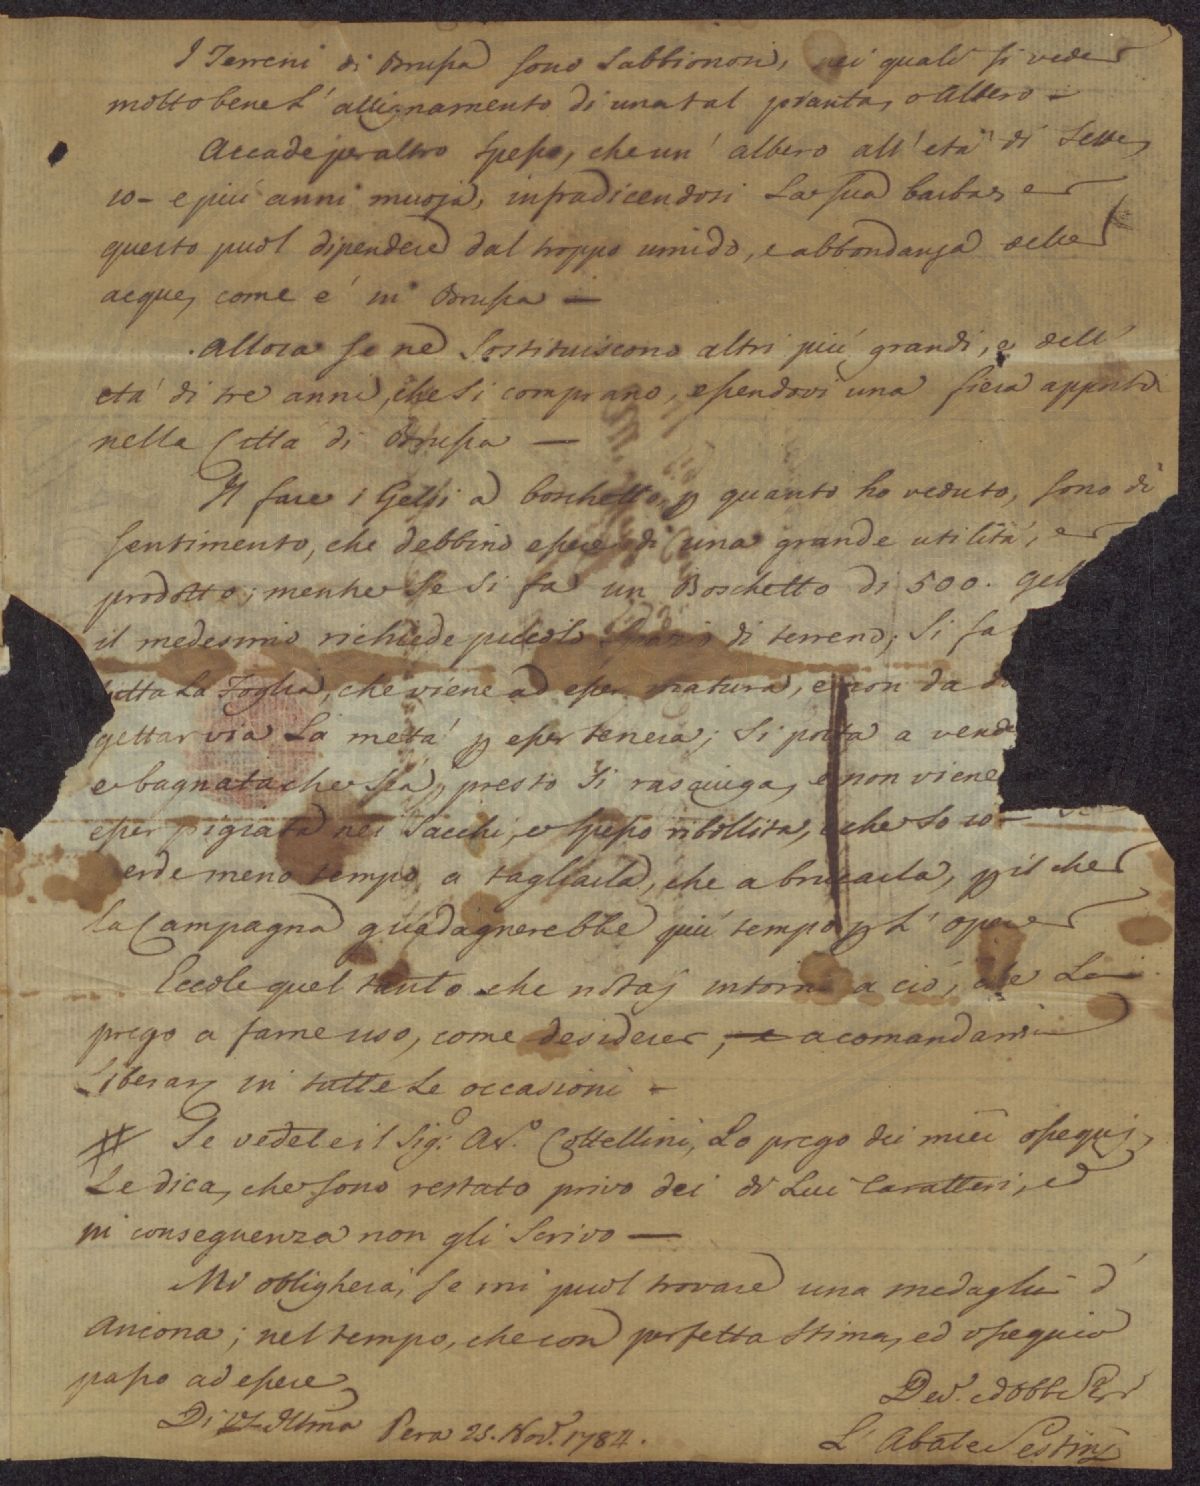 I Terreni di Brussa sono Sabbionosi, nei quali si vede
molto bene L' allignamento di una tal pianta, o Albero –
Accade per altro spesso, che un' albero all' età di Sette,
10 – e più anni muoja, infradicendosi La sua barba, e
questo puol dipendere dal troppo umido, e abbondanza delle
acque, come e' in Brussa —
Allora se ne Sostituiscono altri più grandi, e dell'
età di tre anni, che si comprano, essendovi una fiera apposta
nella Città di Brussa —
Il fare i Gelsi a boschetto, p quanto ho veduto, sono di
sentimento, che debbino essere di una grande utilità, e
prodotto; mentre Se Si fa un Boschetto di 500. Gel
il medesimo richiede piccolo Spazio di terreno; Si fa
tutta La Foglia, che viene ad esser matura, e non da
gettar via La metà p esser tenera; Si porta a vend
e bagnata che Sia, presto Si rasciuga, e non viene
esser pigiata nei Sacchi, e spesso ribollita, che So io –
erde meno tempo a tagliarla, che a brucarla, p il che
la Campagna guadagnerebbe più tempo p L' opere
Eccole quel tanto che notai intorno a ciò, che La
prego a farne uso, come desidera, a comandarmi
Liberam in tutte Le occasioni –
# Se vedete il Sig.º Av.º Cottellini, Lo prego dei miei ossequi,
Le dica, che sono restato privo dei di Lui Caratteri, ed
in conseguenza non gli Scrivo —
Mi obligherà, se mi puol trovare una medaglia d'
Ancona; nel tempo, che con perfetta Stima, ed ossequio
passo ad essere
Di VS Illma Pera 25. Nov.e 1784.
Dev.º ed Obb Ser
L' Abate Sestini